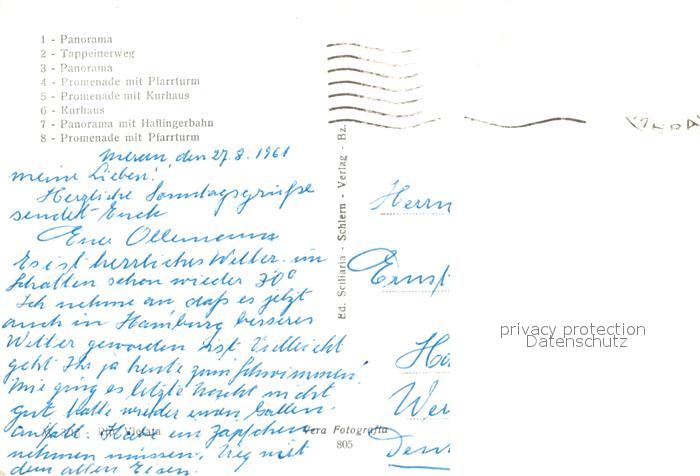 1 - Panorama
2 - Tappeinerweg
3 - Panorama
4 - Promenade mit Pfarrturm
5 - Promenade mit Kurhaus
6 - Kurhaus
7 - Panorama mit Haflingerbahn
8 - Promenade mit Pfarrturm
Meran, den 27.8.1961
meine Lieben!
Herzliche Sonntagsgrüße
sendet Euch
Euer
Es ist herrliches Wetter. im
Schatten schon wieder 30°
Ich nehme an, daß es jetzt
auch in Hamburg besseres
Wetter geworden ist. Vielleicht
geht Ihr ja heute zum Schwimmen!
Mir ging es letzte Nacht nicht
gut, hatte wieder einen Gallen-
anfall. Habe ein Zäpfchen
nehmen müssen.
dem alten Eisen.
Ed. Sciliaria - Schlern - Verlag - Bz.
Vera Fotografia
805
Herrn
Ernst
privacy protection
Datenschutz